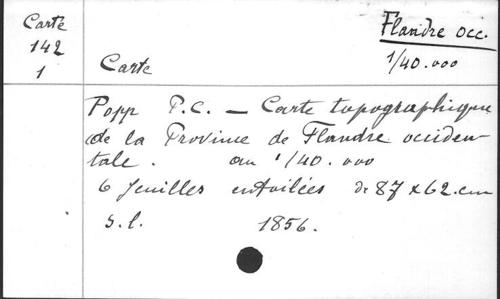 Carte
142
1
Flandre occ.
1/40.000
Carte
Popp P.C. — Carte topographique
de la Province de Flandre occiden
tale. au 1/40.000
6 feuilles entoilées de 87 x 62.cm
s.l. 1856.